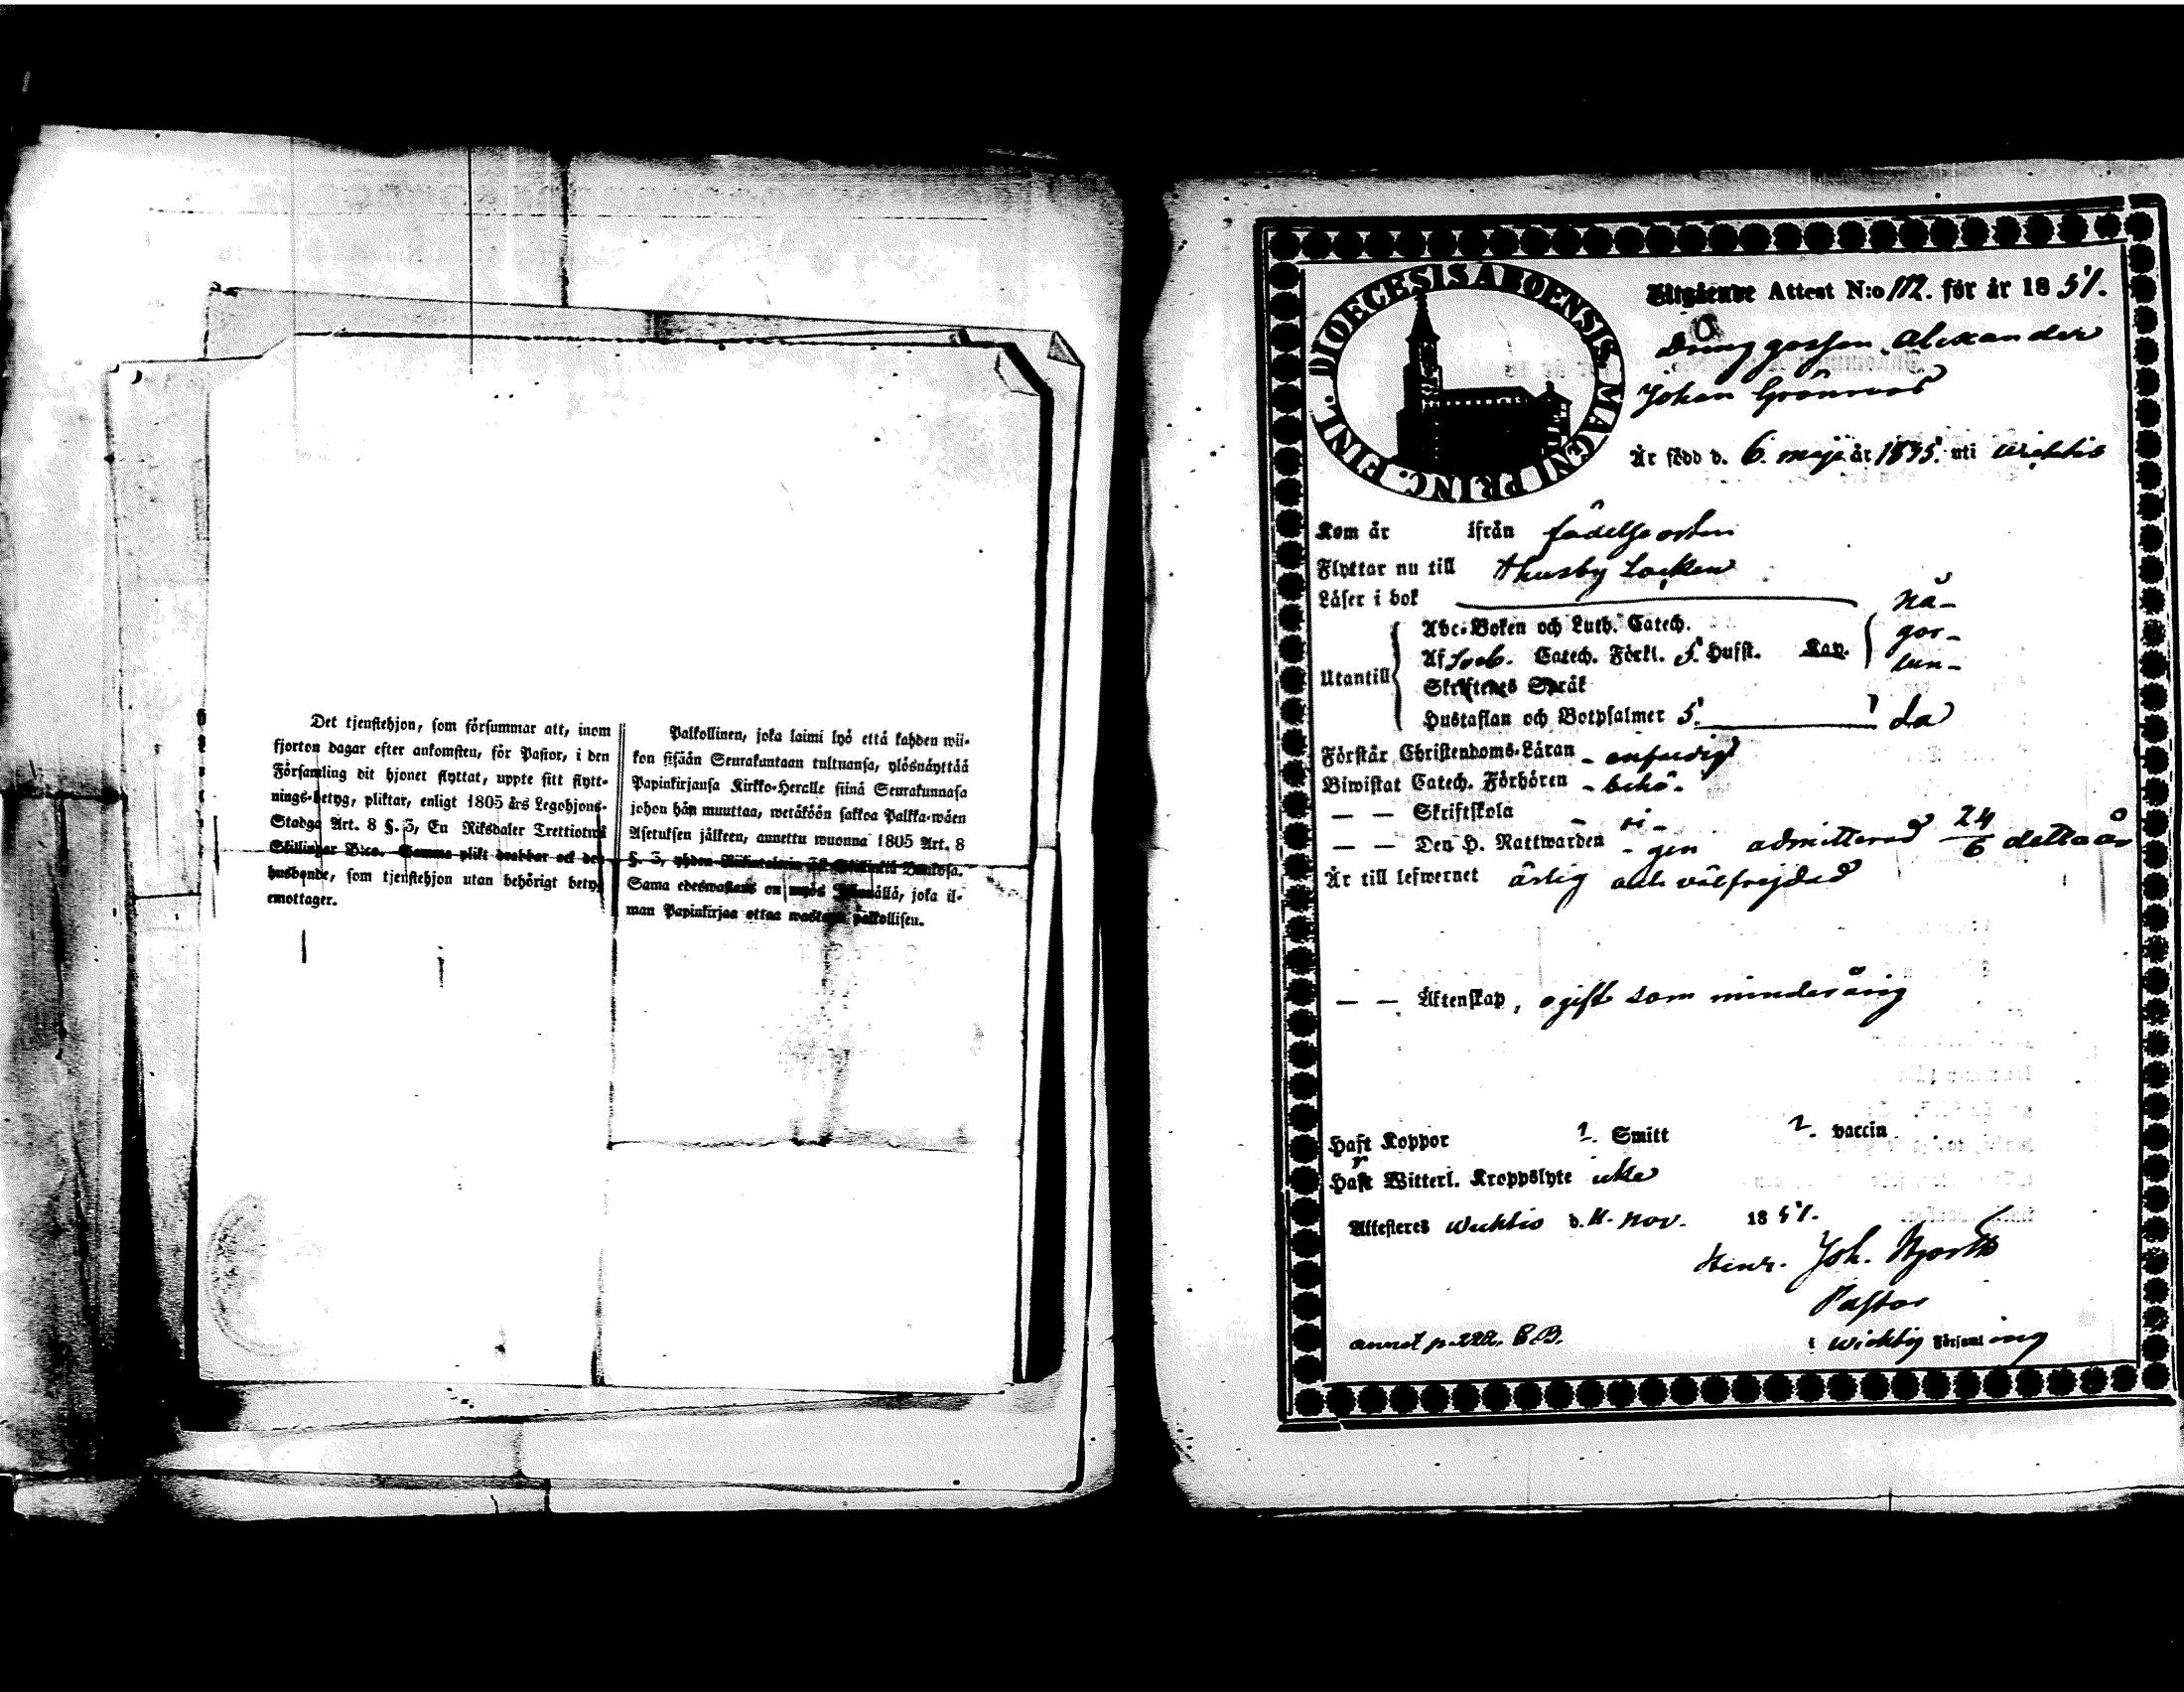 Det tjenstehjon, som försummar att, inom
fjorton dagar efter ankomsten, för Pastor, i den
Församling dit hjonet flyttat, uppte sitt flytt-
nings-betyg, pliktar, enligt 1805 års Legohjons-
Stadga Art. 8 §. 3, En Riksdaler Trettiotwå
Skillingar B:co. Samma plikt drabbar ock den
husbonde, som tjenstehjon utan behörigt betyg
emottager.
Palkollinen, joka laimi lyö että kahden wii-
kon sisään Seurakuntaan tultuansa, ylösnäyttää
Papinkirjansa Kirkko-Heralle siinä Seurakunnasa
johon hän muuttaa, wetäköön sakkoa Palkka-wäen
Asetuksen jälkeen, annettu wuonna 1805 Art. 8
§. 3, yhden Riikintalerin 32 Skillinkiä Bankosa.
Sama edeswastaus on myös Isännällä, joka il-
man Papinkirjaa ottaa wastaan palkollisen.
DIOECESIS ABOENSIS MAGNI PRINC. FINL.
Utgående Attest N:o 112. för år 1851.
Dränggossen Alexander
Johan Grönroos
Är född d. 6. maji år 1835. uti Wichtis
Kom år ifrån födelseorten
Flyttar nu till Thusby Socken
Läser i bok nå-
Abc-Boken och Luth. Catech. gor-
Af Sveb. Catech. Förkl. 5. Husst. Kap. lun-
Utantill
Skriftenes Språk
Hustaflan och Botpsalmer 5. da
Förstår Christendoms-Läran - enfaldigt
Biwistat Catech. Förhören - behö-
— — Skriftskola - ri -
— — Den H. Nattwarden - gen admitterad 24/6 detta år
Är till lefwernet ärlig och välfrejdad
— — Äktenskap, ogift som minderårig
Haft Koppor 1. Smitt 2. vaccin
Har Witterl. Kroppslyte icke
Attesteres Wichtis d. 11. nov. 1851.
Henr. Joh. Hjorth
Pastor
annot p. 222. C.B. i Wichtis Församling